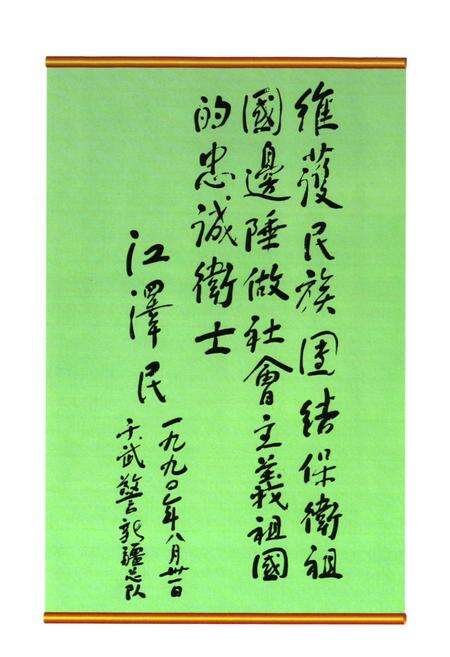 維護民族團結保衛祖
國邊陲做社會主義祖國
的忠誠衛士
江澤民
一九九〇年八月卅一日
于武警新疆总队